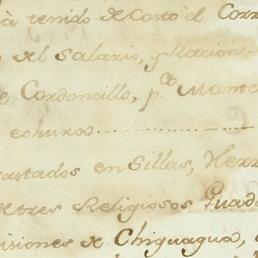 à tenido de costo el Corr
o del Salario, y Racion
e Cordoncillo, p.ª Mante
echuros
astados en Sillas, Herr
de tres Religiosos Guada
isiones de Chiguagua,